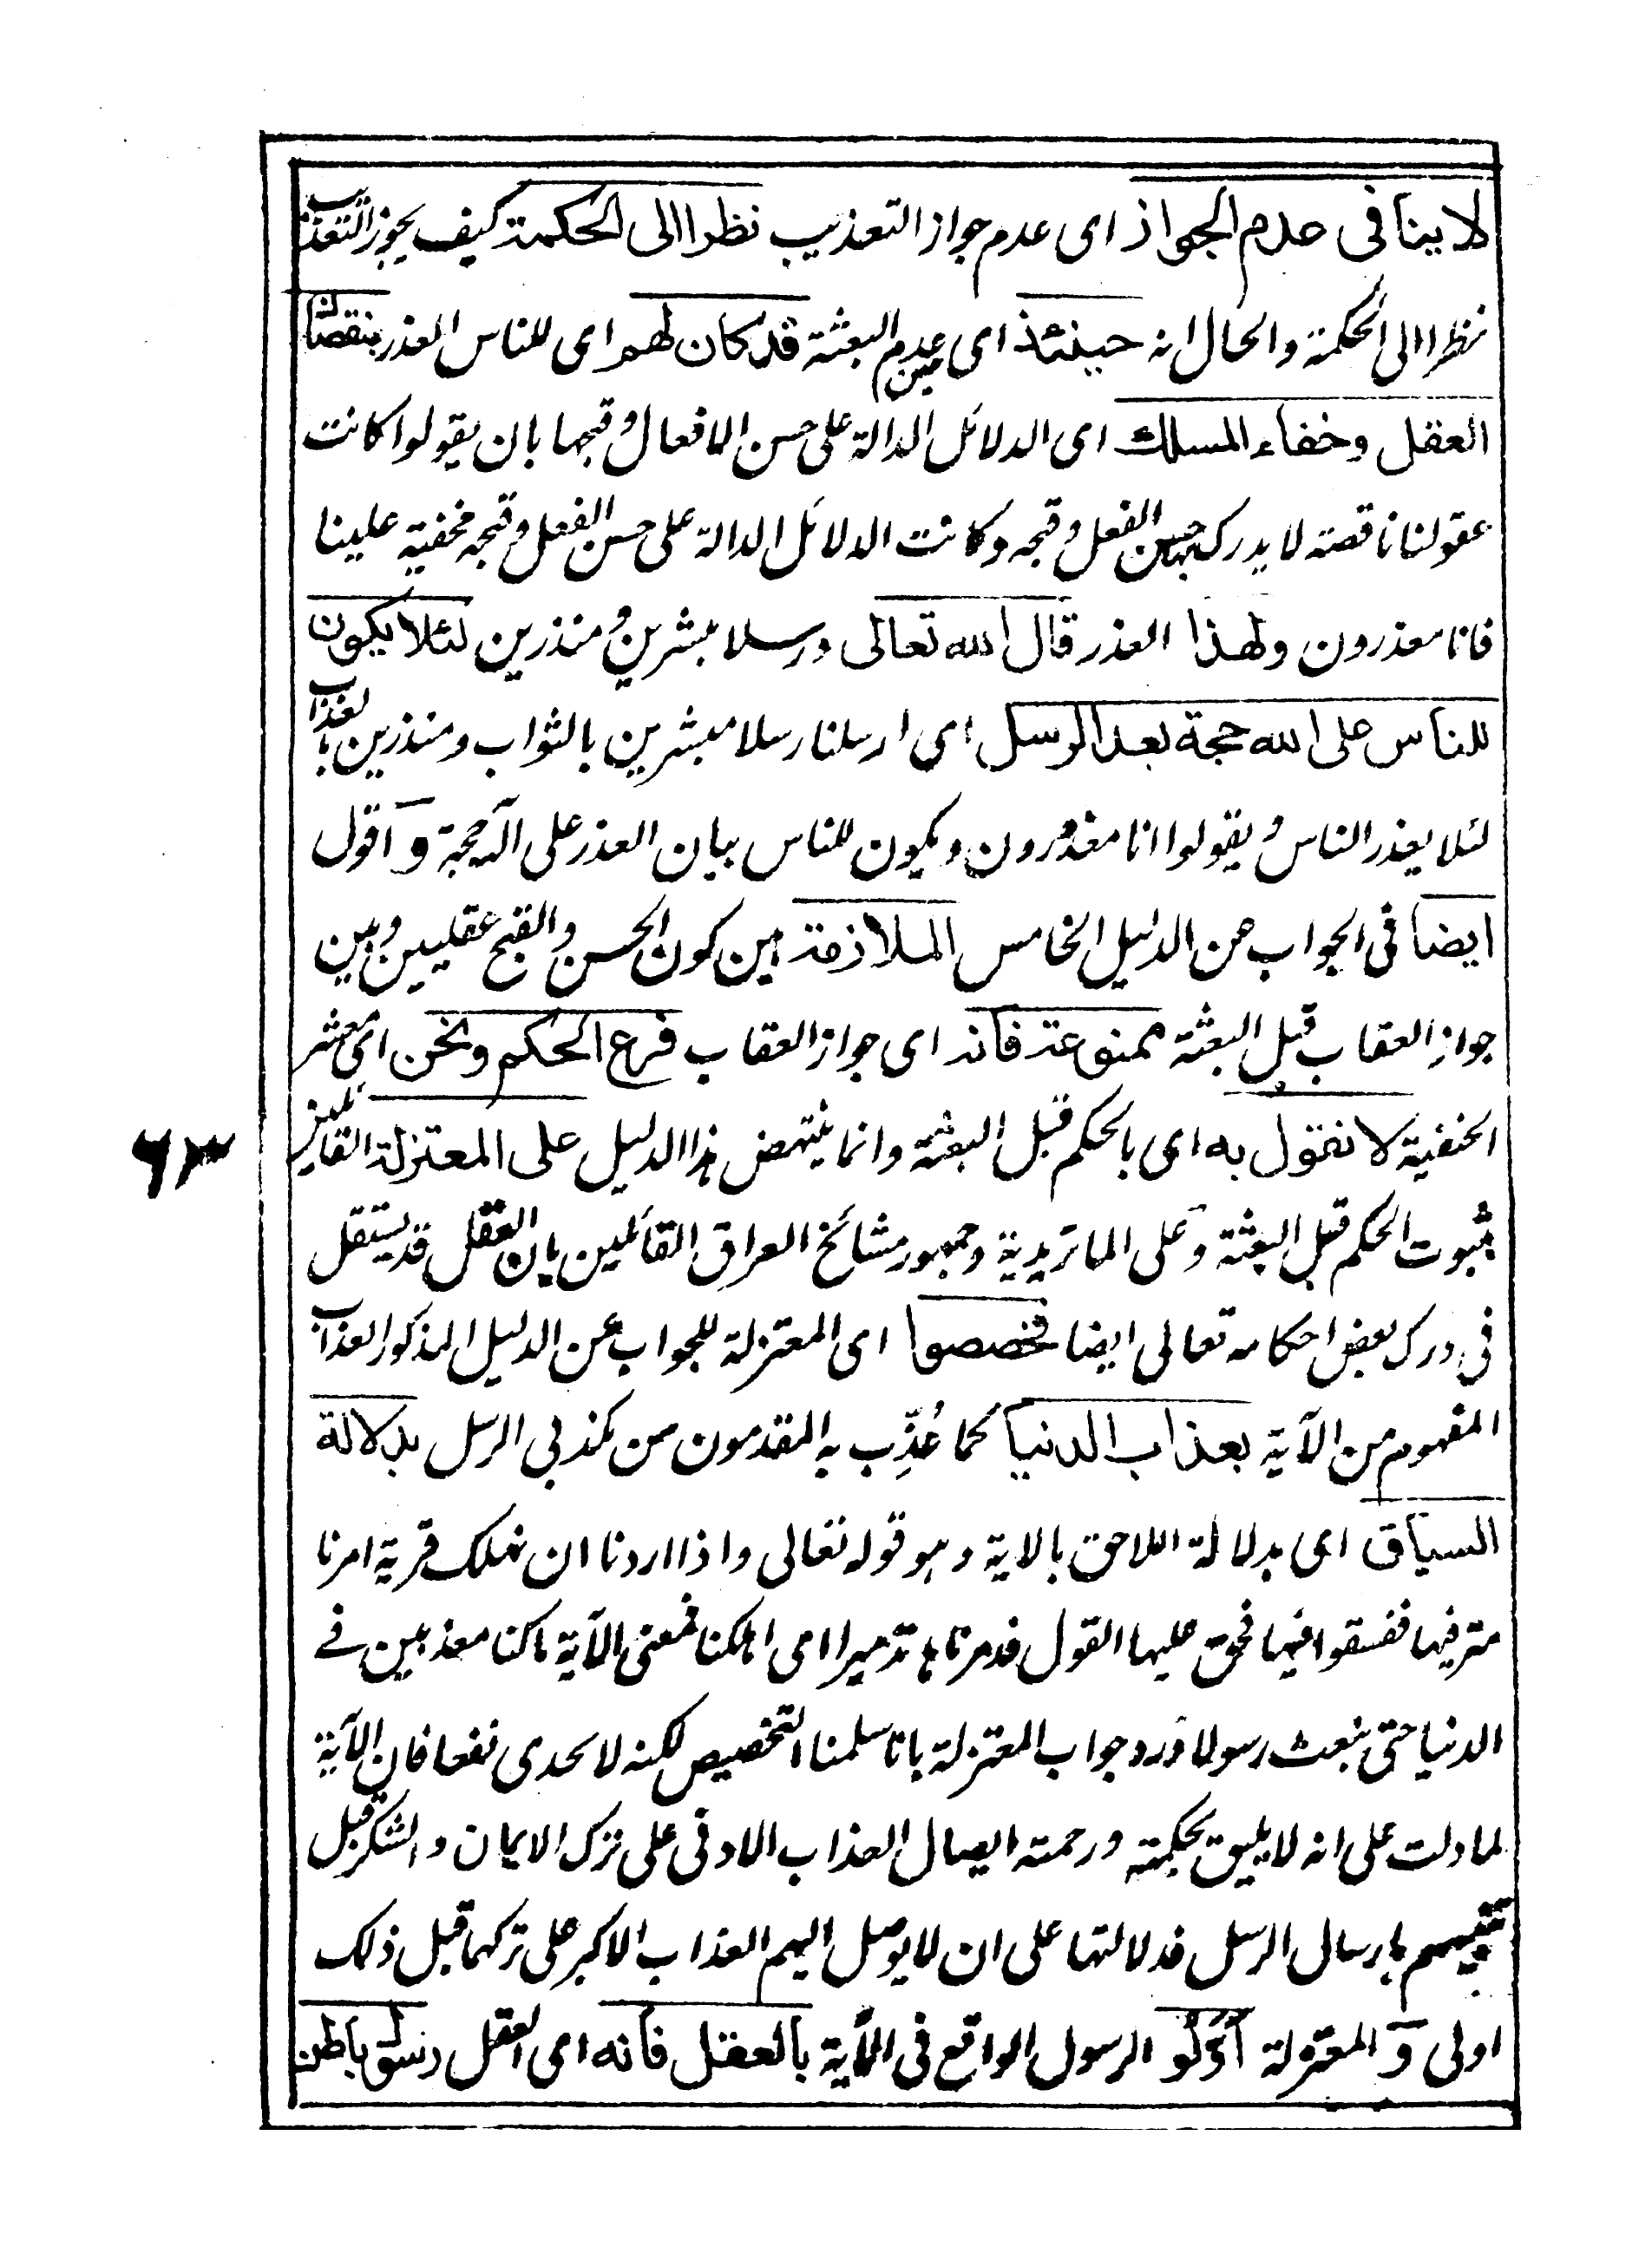 لا ينافى عدم الجواز اى عدم جواز التعذيب نظرا الى الحكمة كيف يجوز التعذيب
نظرا الى الحكمة والحال انه حينئذ اى حين عدم البعثة قد كان لهم اى للناس العذر بنقصان
العقل وخفاء المسلك اى الدلائل الدالة على حسن الافعال وقبحها بان يقولوا كانت
عقولنا ناقصة لا يدرك بها حسن الفعل وقبحه وكانت الدلائل الدالة على حسن الفعل وقبحه مخفية علينا
فانا معذرون ولهذا العذر قال الله تعالى ورسلا مبشرين ومنذرين لئلا يكون
للناس على الله حجة بعد الرسل اى ارسلنا رسلا مبشرين بالثواب ومنذرين بالعذاب
لئلا يعذر الناس ويقولوا انا معذورون ويكون للناس ببيان العذر على اله حجة و اقول
ايضا فى الجواب عن الدليل الخامس الملازمة بين كون الحسن والقبح عقليين وبين
جواز العقاب قبل البعثة ممنوعة فانه اى جواز العقاب فرع الحكم ونحن اى معشر
الحنفية لا نقول به اى بالحكم قبل البعثة وانما ينتهض هذا الدليل على المعتزلة القائلين
۶۳
بثبوت الحكم قبل البعثة وعلى الماتريدية وجمهور مشائخ العراق القائلين بان العقل قد يستقل
فى درك بعض احكامه تعالى ايضا فخصصوا اى المعتزلة للجواب عن الدليل المذكور العذاب
المفهوم من الآية بعذاب الدنيا كما عُذِّب به المقدمون من مكذبى الرسل بدلالة
السياق اى بدلالة اللاحق بالاية وهو قوله تعالى واذا اردنا ان نهلك قرية امرنا
مترفيها ففسقوا فيها فحق عليها القول فدمرناها تدميرا اى اهلكنا فمعنى الآية ماكنا معذبين فے
الدنيا حتى نبعث رسولا ورد جواب المعتزلة بانا سلمنا التخصيص لكنه لا يجدى نفعا فان الآية
لما دلت على انه لا يليق بحكمته ورحمته ايصال العذاب الادنى على ترك الايمان والشكر قبل
تنبيههم بارسال الرسل فدلالتها على ان لا يوصل اليهم العذاب الاكبر على تركهما قبل ذلك
اولى و المعتزلة اَوّلُو الرسول الواقع فى الآية بالعقل فانه اى العقل رسول باطن